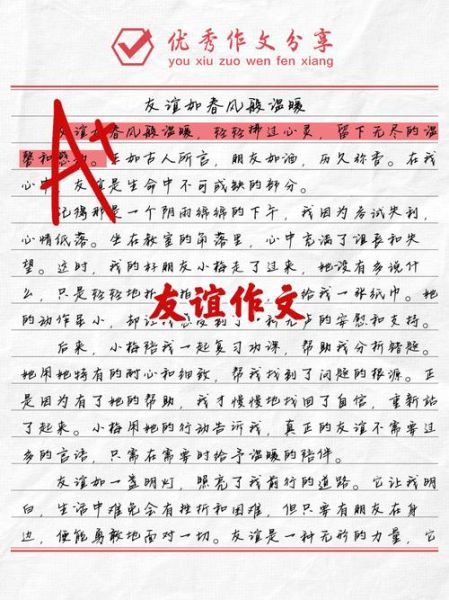 优秀作文分享
you xiu zuo wen fen xiang
友谊如春风般温暖
A+
友谊如春风般温暖，轻轻拂过心灵，留下无尽的温
馨和感动。正如古人所言，朋友如酒，历久弥香。在我
心中，友谊是生命中不可或缺的部分。
记得那是一个阴雨绵绵的下午，我因为考试失利，
心情低落。坐在教室的角落里，心中充满了沮丧和失
望。这时，我的好朋友小梅走了过来，她没有多说什
么，只是轻轻地拍 给我一张纸巾。她
友谊作文
的动作虽小，却 到了一种无声的安慰和支持。
后来，小梅陪我一起复习功课，帮助我分析错题。
她用她特有的耐心和细致，帮我找到了问题的根源。正
是因为有了她的帮助，我才慢慢地找回了自信，重新站
了起来。小梅用她的行动告诉我，真正的友谊不需要过
多的言语，只需在需要时给予温暖的陪伴。
友谊如一盏明灯，照亮了我前行的道路。它让我明
白，生活中难免会有挫折和困难，但只要有朋友在身
边，便能勇敢地面对一切。友谊是一种无形的力量，它